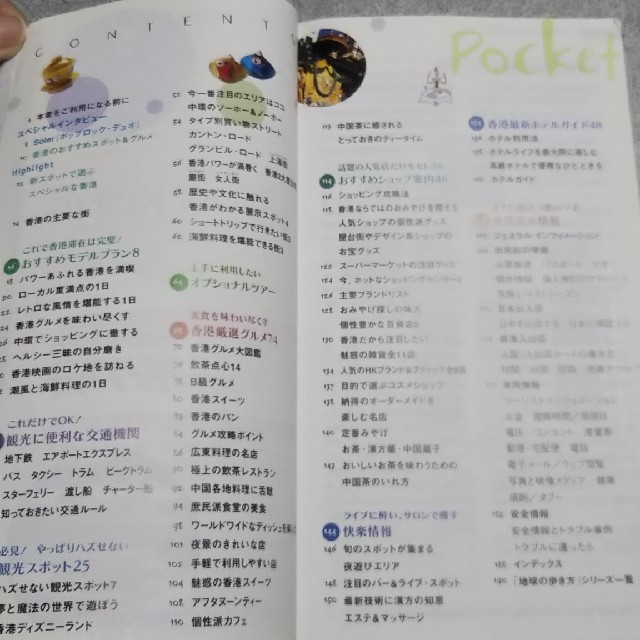 CONTENTS
4 本書をご利用になる前に
スペシャルインタビュー
6 Soler(ポップロック・デュオ)
10 香港のおすすめスポット＆グルメ
Highlight
12 新スポットで遊ぶ
スペシャルな香港
14 香港の主要な街
これで香港滞在は完璧!
おすすめモデルプラン8
18 パワーあふれる香港を満喫
20 ローカル度満点の1日
22 レトロな風情を堪能する1日
24 香港グルメを味わい尽くす
26 中環でショッピングに徹する
28 ヘルシー三昧の自分磨き
30 香港映画のロケ地を訪ねる
32 潮風と海鮮料理の1日
これだけでOK!
観光に便利な交通機関
地下鉄 エアポートエクスプレス
バス タクシー トラム ピークトラム
スターフェリー 渡し船 チャーター船
知っておきたい交通ルール
必見! やっぱりハズせない
観光スポット25
ハズせない観光スポット7
夢と魔法の世界で遊ぼう
香港ディズニーランド
52 今一番注目のエリアはココ
中環のソーホー＆ノーホー
54 タイプ別買い物ストリート
カントン・ロード
グランビル・ロード 上海街
56 香港パワーが渦巻く
廟街 女人街
58 歴史や文化に触れる
香港がわかる展示スポット4
60 ショートトリップで行きたい街3
62 海鮮料理を堪能できる街3
64 上手に利用したい
オプショナルツアー
美食を味わい尽くす
68 香港厳選グルメ74
70 香港グルメ大図鑑
76 飲茶点心14
78 B級グルメ
80 香港スイーツ
83 香港のパン
84 グルメ攻略ポイント
86 広東料理の名店
90 極上の飲茶レストラン
92 中国各地料理に舌鼓
94 庶民派食堂の美食
98 ワールドワイドなディッシュを
101 夜景のきれいな店
102 手軽で利用しやすい店
104 魅惑の香港スイーツ
108 アフタヌーンティー
110 個性派カフェ
Pocket
113 中国茶に癒される
とっておきのティータイム
話題の人気店だけをセレクト
114 おすすめショップ案内46
116 ショッピング攻略法
118 香港ならではのおみやげを探そう
人気ショップの個性派グッズ
屋台街やデザイン系ショップの
お宝グッズ
122 スーパーマーケットの注目グッズ
124 今、ホットなショッピングセンター
126 主要ブランドリスト
128 おみやげ探しの味方
個性豊かな百貨店
130 香港だから注目したい
魅惑の雑貨店11
134 人気のMKブランド＆ブティック
137 目的で選ぶコスメショップ
138 納得のオーダーメイド
楽しむ名店
140 定番みやげ
お茶・漢方薬・中国菓子
142 おいしいお茶を味わうための
中国茶のいれ方
ライブに酔い、サロンで癒す
144 快楽情報
146 旬のスポットが集まる
夜遊びエリア
148 注目のバー＆ライブ・スポット
150 最新技術に漢方の知恵
エステ＆マッサージ
154 香港最新ホテルガイド48
156 ホテル利用法
158 ホテルライフを最大限に楽しむ
高級ホテルで優雅なひとときを
160 ホテルガイド
ジェネラル インフォメーション
出発前の準備
日本出入国
香港入出国
実用情報
ツーリストインフォメーション
電圧 コンセント 度量衡
郵便・宅配便 電話
電子メール/ウェブ閲覧
写真と映像メディア 健康
安全情報
安全情報とトラブル事例
トラブルに遭ったら
インデックス
190 「地球の歩き方」シリーズ一覧